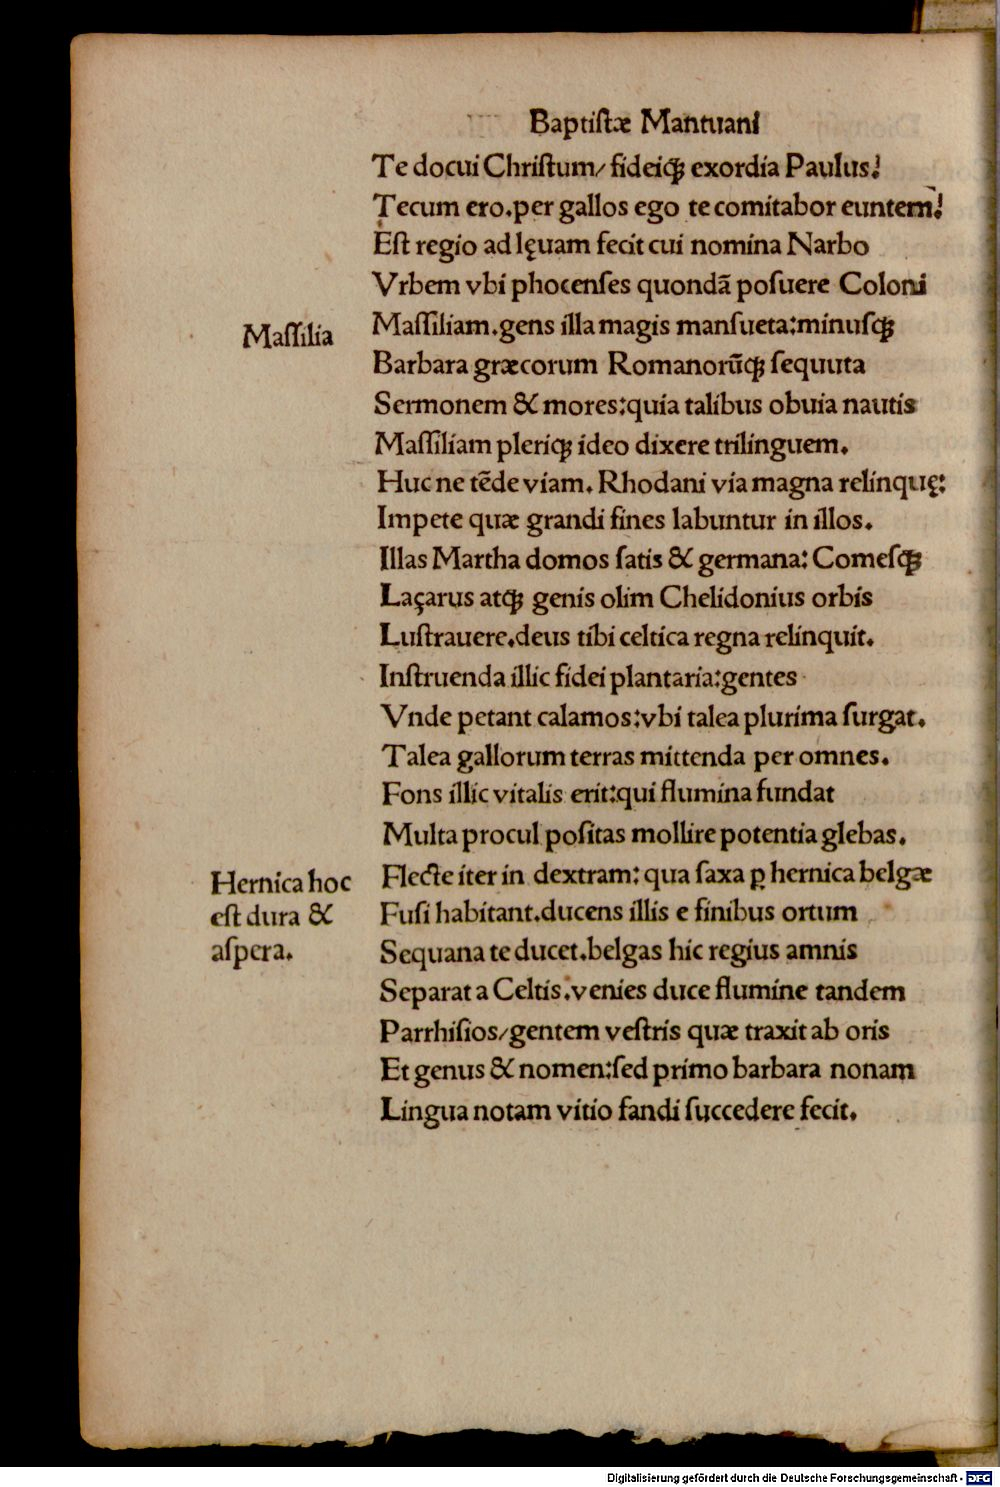 Baptiſtæ Mantuani
Te docui Chriſtum/ fideiqꝫ exordia Paulus!
Tecum ero.per gallos ego te comitabor euntem!
Eſt regio ad lęuam fecit cui nomina Narbo
Vrbem vbi phocenſes quondã poſuere Coloni
Maſſilia
Maſſiliam.gens illa magis manſueta:minuſqꝫ
Barbara græcorum Romanorũqꝫ ſequuta
Sermonem & mores:quia talibus obuia nautis
Maſſiliam pleriqꝫ ideo dixere trilinguem.
Huc ne tẽde viam. Rhodani via magna relinquę:
Impete quæ grandi fines labuntur in illos.
Illas Martha domos ſatis & germana: Comeſqꝫ
Laçarus atqꝫ genis olim Chelidonius orbis
Luſtrauere.deus tibi celtica regna relinquit.
Inſtruenda illic fidei plantaria:gentes
Vnde petant calamos:vbi talea plurima ſurgat.
Talea gallorum terras mittenda per omnes.
Fons illic vitalis erit:qui flumina fundat
Multa procul poſitas mollire potentia glebas.
Hernica hoc
eſt dura &
aſpera.
Flecte iter in dextram: qua ſaxa ꝑ hernica belgæ
Fuſi habitant.ducens illis e finibus ortum
Sequana te ducet.belgas hic regius amnis
Separat a Celtis.venies duce flumine tandem
Parrhiſios/gentem veſtris quæ traxit ab oris
Et genus & nomen:ſed primo barbara nonam
Lingua notam vitio fandi ſuccedere fecit.
Digitalisierung gefördert durch die Deutsche Forschungsgemeinschaft - DFG